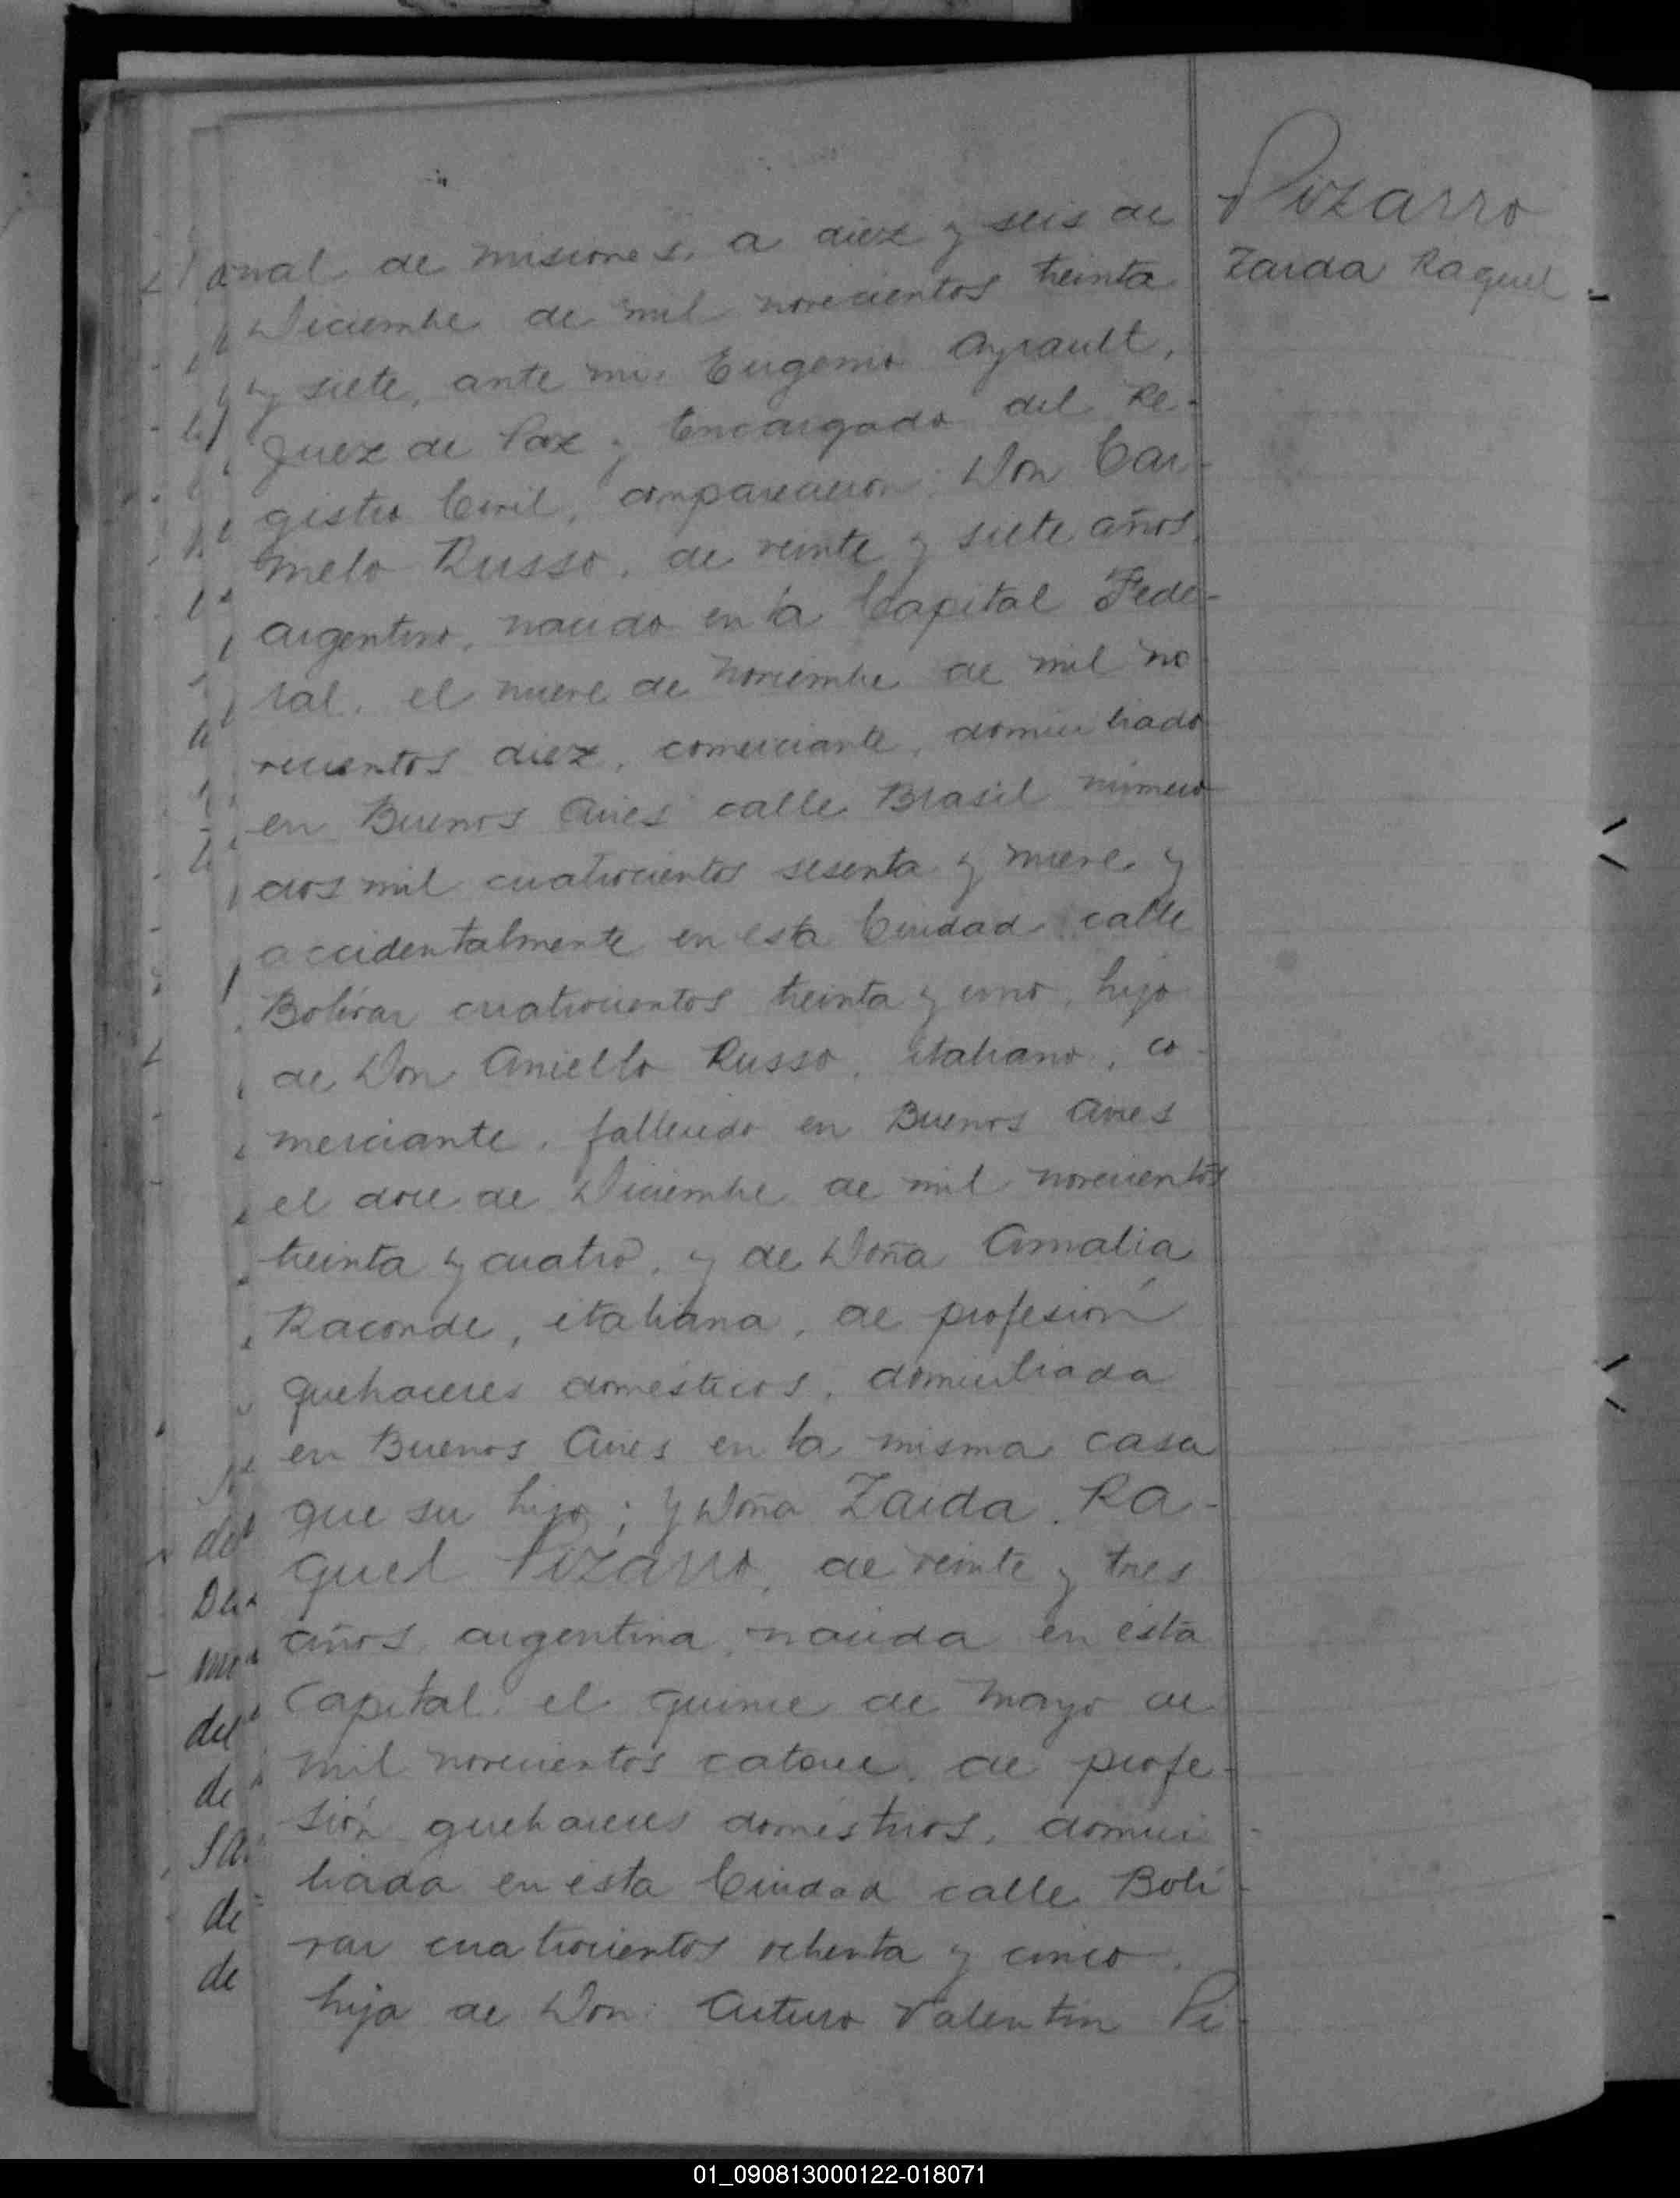 Pizarro
Zaida Raquel
onal de misiones, a diez y seis de
Diciembre de mil novecientos treinta
y siete, ante mi, Eugenio Ayrault,
Juez de Paz y Encargado del Re-
gistro Civil, comparecieron: Don Car-
melo Russo, de veinte y siete años,
argentino, nacido en la Capital Fede-
ral, el nueve de noviembre de mil no-
vecientos diez, comerciante, domiciliado
en Buenos Aires calle Brasil número
dos mil cuatrocientos sesenta y nueve, y
accidentalmente en esta Ciudad calle
Bolívar cuatrocientos treinta y uno, hijo
de Don Aniello Russo, italiano, co-
merciante, fallecido en Buenos Aires
el doce de Diciembre de mil novecientos
treinta y cuatro, y de Doña Amalia
Raconde, italiana, de profesión
quehaceres domésticos, domiciliada
en Buenos Aires en la misma casa
que su hijo; y Doña Zaida Ra-
quel Pizarro, de veinte y tres
años, argentina, nacida en esta
Capital, el quince de mayo de
mil novecientos catorce, de profe-
sión quehaceres domésticos, domici-
liada en esta Ciudad calle Bolí-
var cuatrocientos ochenta y cinco,
hija de Don: Arturo Valentín Pi-
01_090813000122-018071